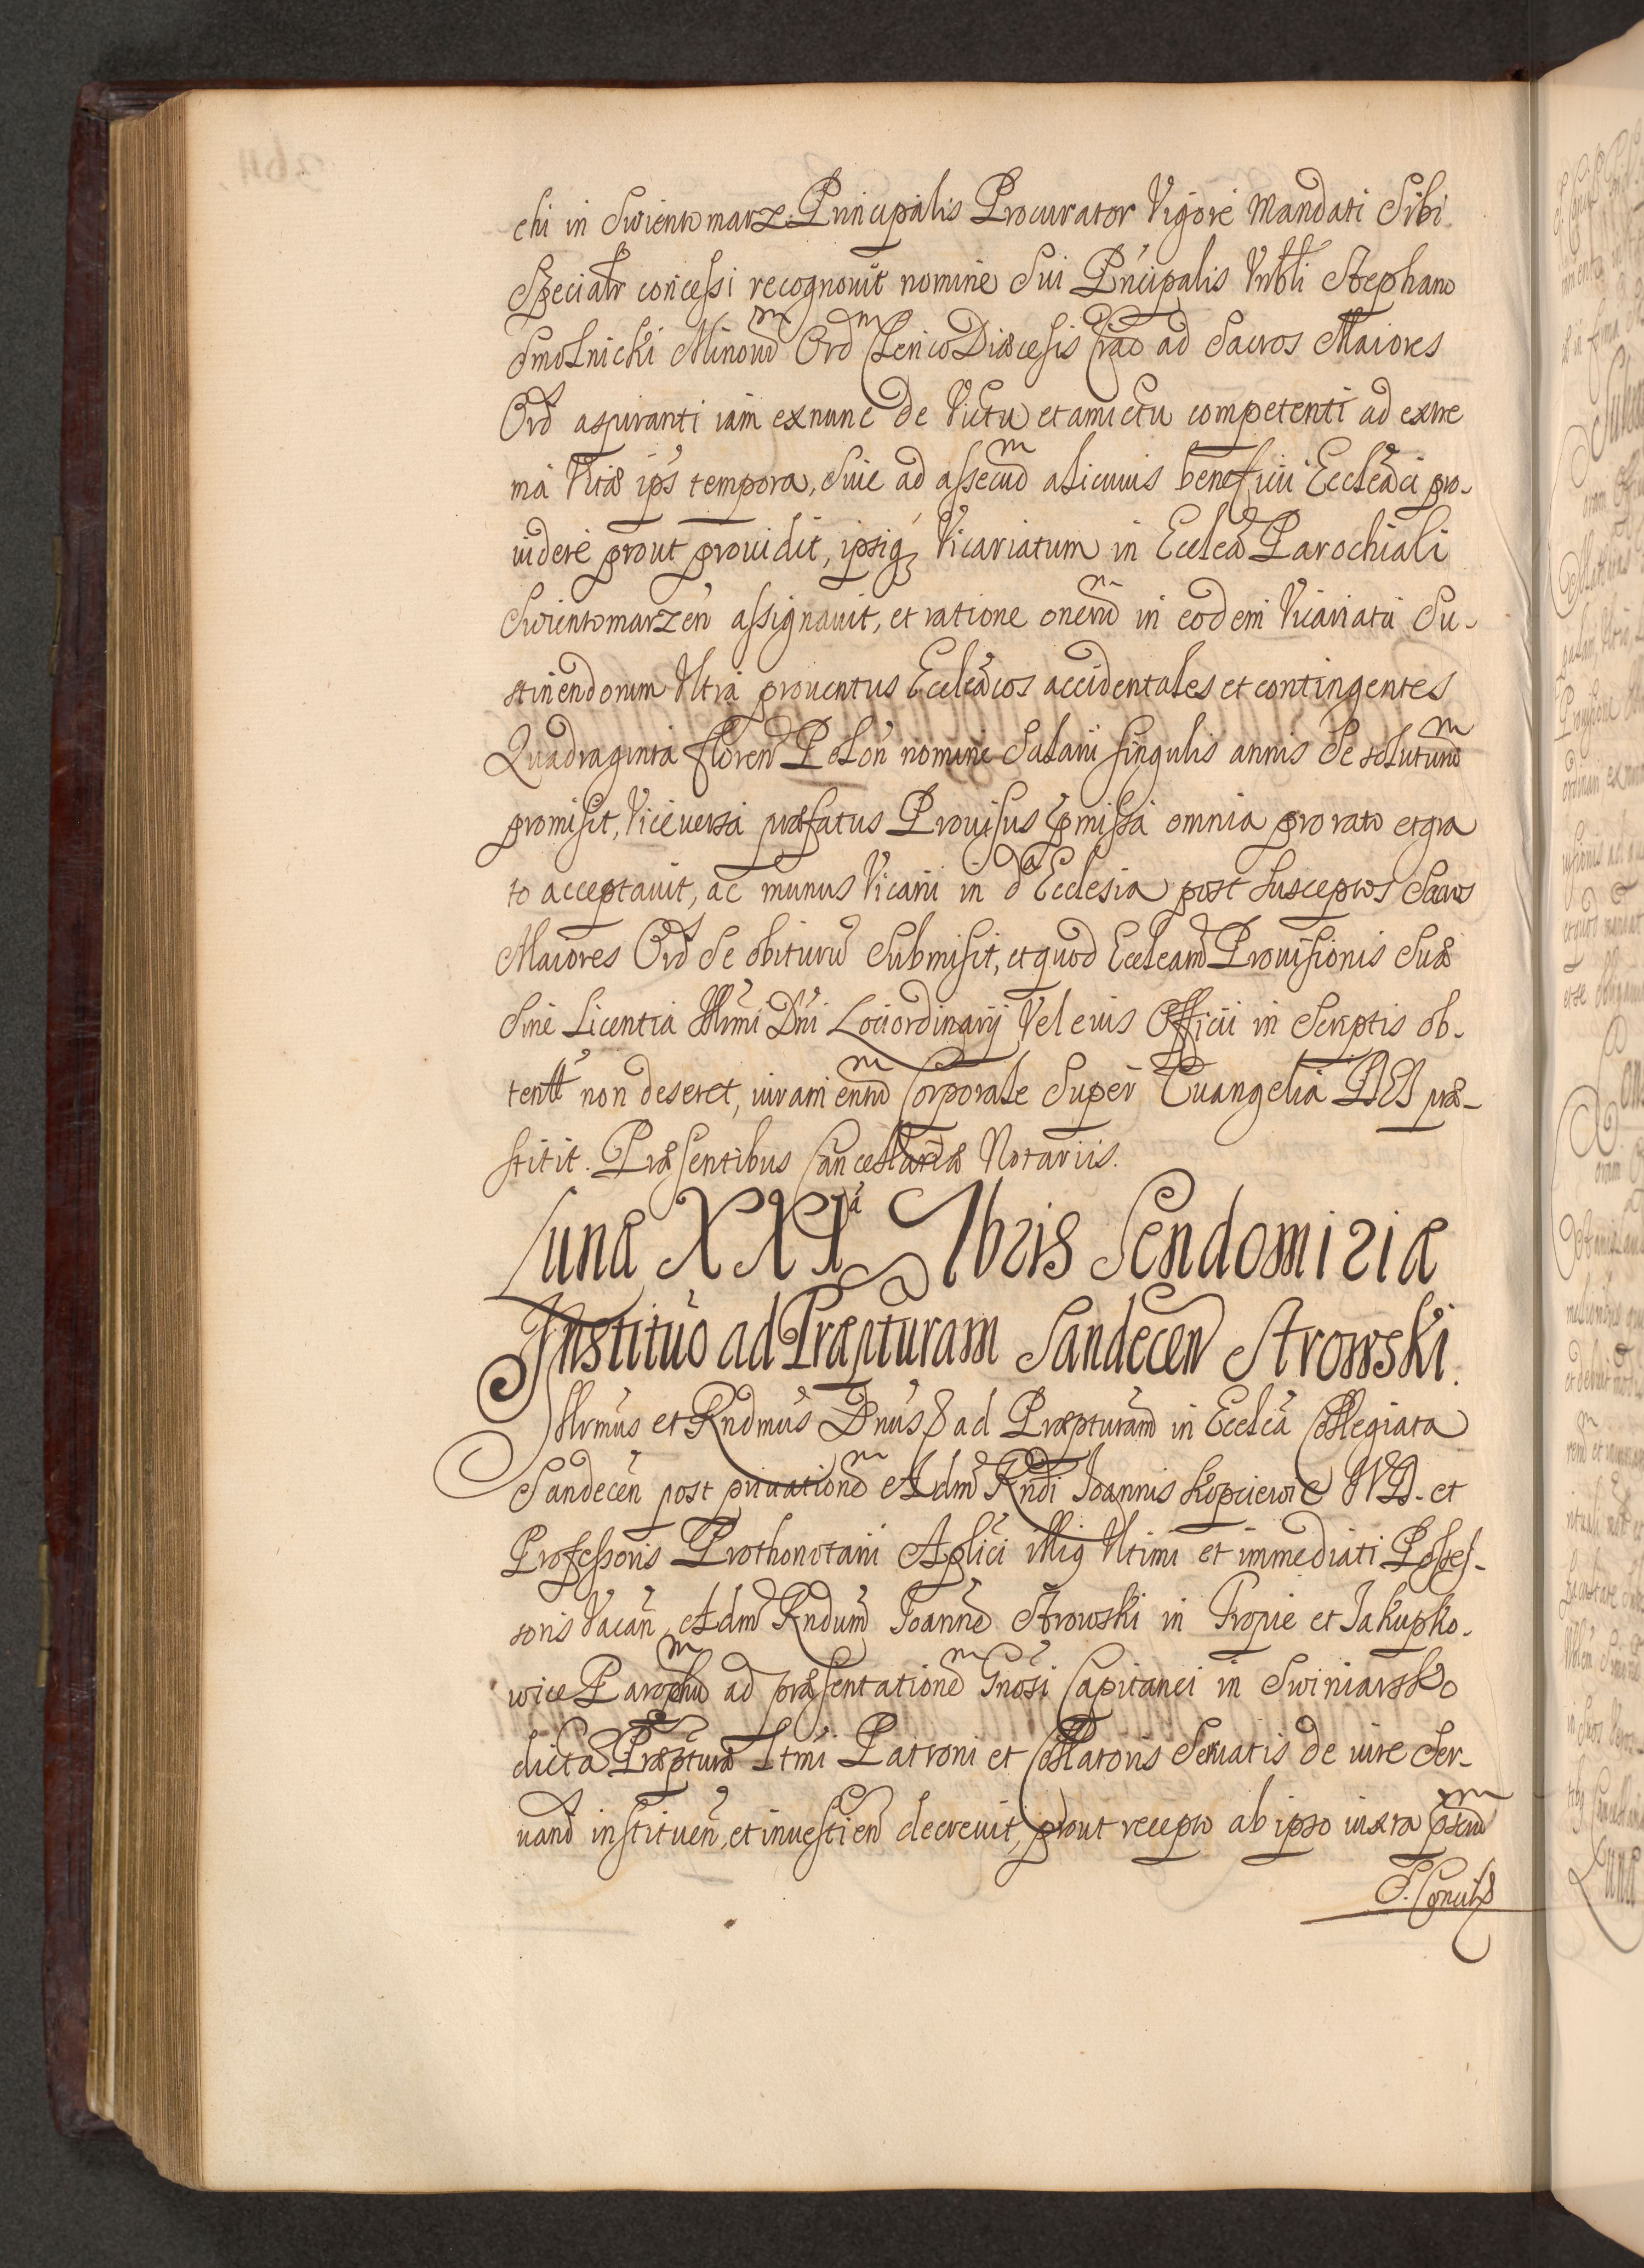 chi in Swientomarz. Principalis Procurator Vigore Mandati Sibi
Specialr concessi recognouit nomine Sui Pncipalis Vrbli Stephano
Smolnicki Minorū Ord Clerico Diæcesis Crac ad Sacros Maiores
Ord aspiranti iam exnunc de Victu et amictu competenti ad extre
ma Vitæ ips tempora, siue ad assecūd alicuius beneficii Eccleaci pro-
uidere prout prouidit, ipsiq Vicariatum in Ecclea Parochiali
Swientomarzen assignauit, et ratione onerū in eodem Vicariatu Su-
stinendorum Vltra prouentus Eccleacos accidentales et contingentes
Quadraginta floren Polon nomine Salarii singulis annis Se soluturū
promisit, Viceuersa præfatus Prouisus pmissa omnia pro rato et gra
to acceptauit, ac munus Vicarii in da Ecclesia post susceptos Sacros
Maiores Ord Se obiturū Submisit, et quod Eccleam Prouisionis Suæ
Sine Licentia Illrmi Dni Loci ordinarij Vel eius Officii in Scriptis ob-
tent non deseret, iuram entū Corporale Super Euangelia DEI præ-
stitit. Præsentibus Cancellariæ Notariis.
Lunæ XXIa 7bris Sendomiriæ
Instituo ad Præpturam Sandecen Strowski.
Illrmus et Rndmus Dnus ad Præpturam in Ecclea Collegiata
Sandecen post priuationē Adm Rndi Ioannis Kopciewic IVD. et
Professoris Prothonotarii Aplici illiq Vltimi et immediati Posses-
soris Vacan, Adm Rndum Ioannē Strowski in Tropie et Iakupko-
wice Parochū ad præsentationē Gnosi Capitanei in Swiniarsko
dictæ Præpturæ Ltmi Patroni et Collatoris Seruatis de iure Ser-
uand instituen, et inuestiend decreuit, prout recepto ab ipso iuxta
S. Concily